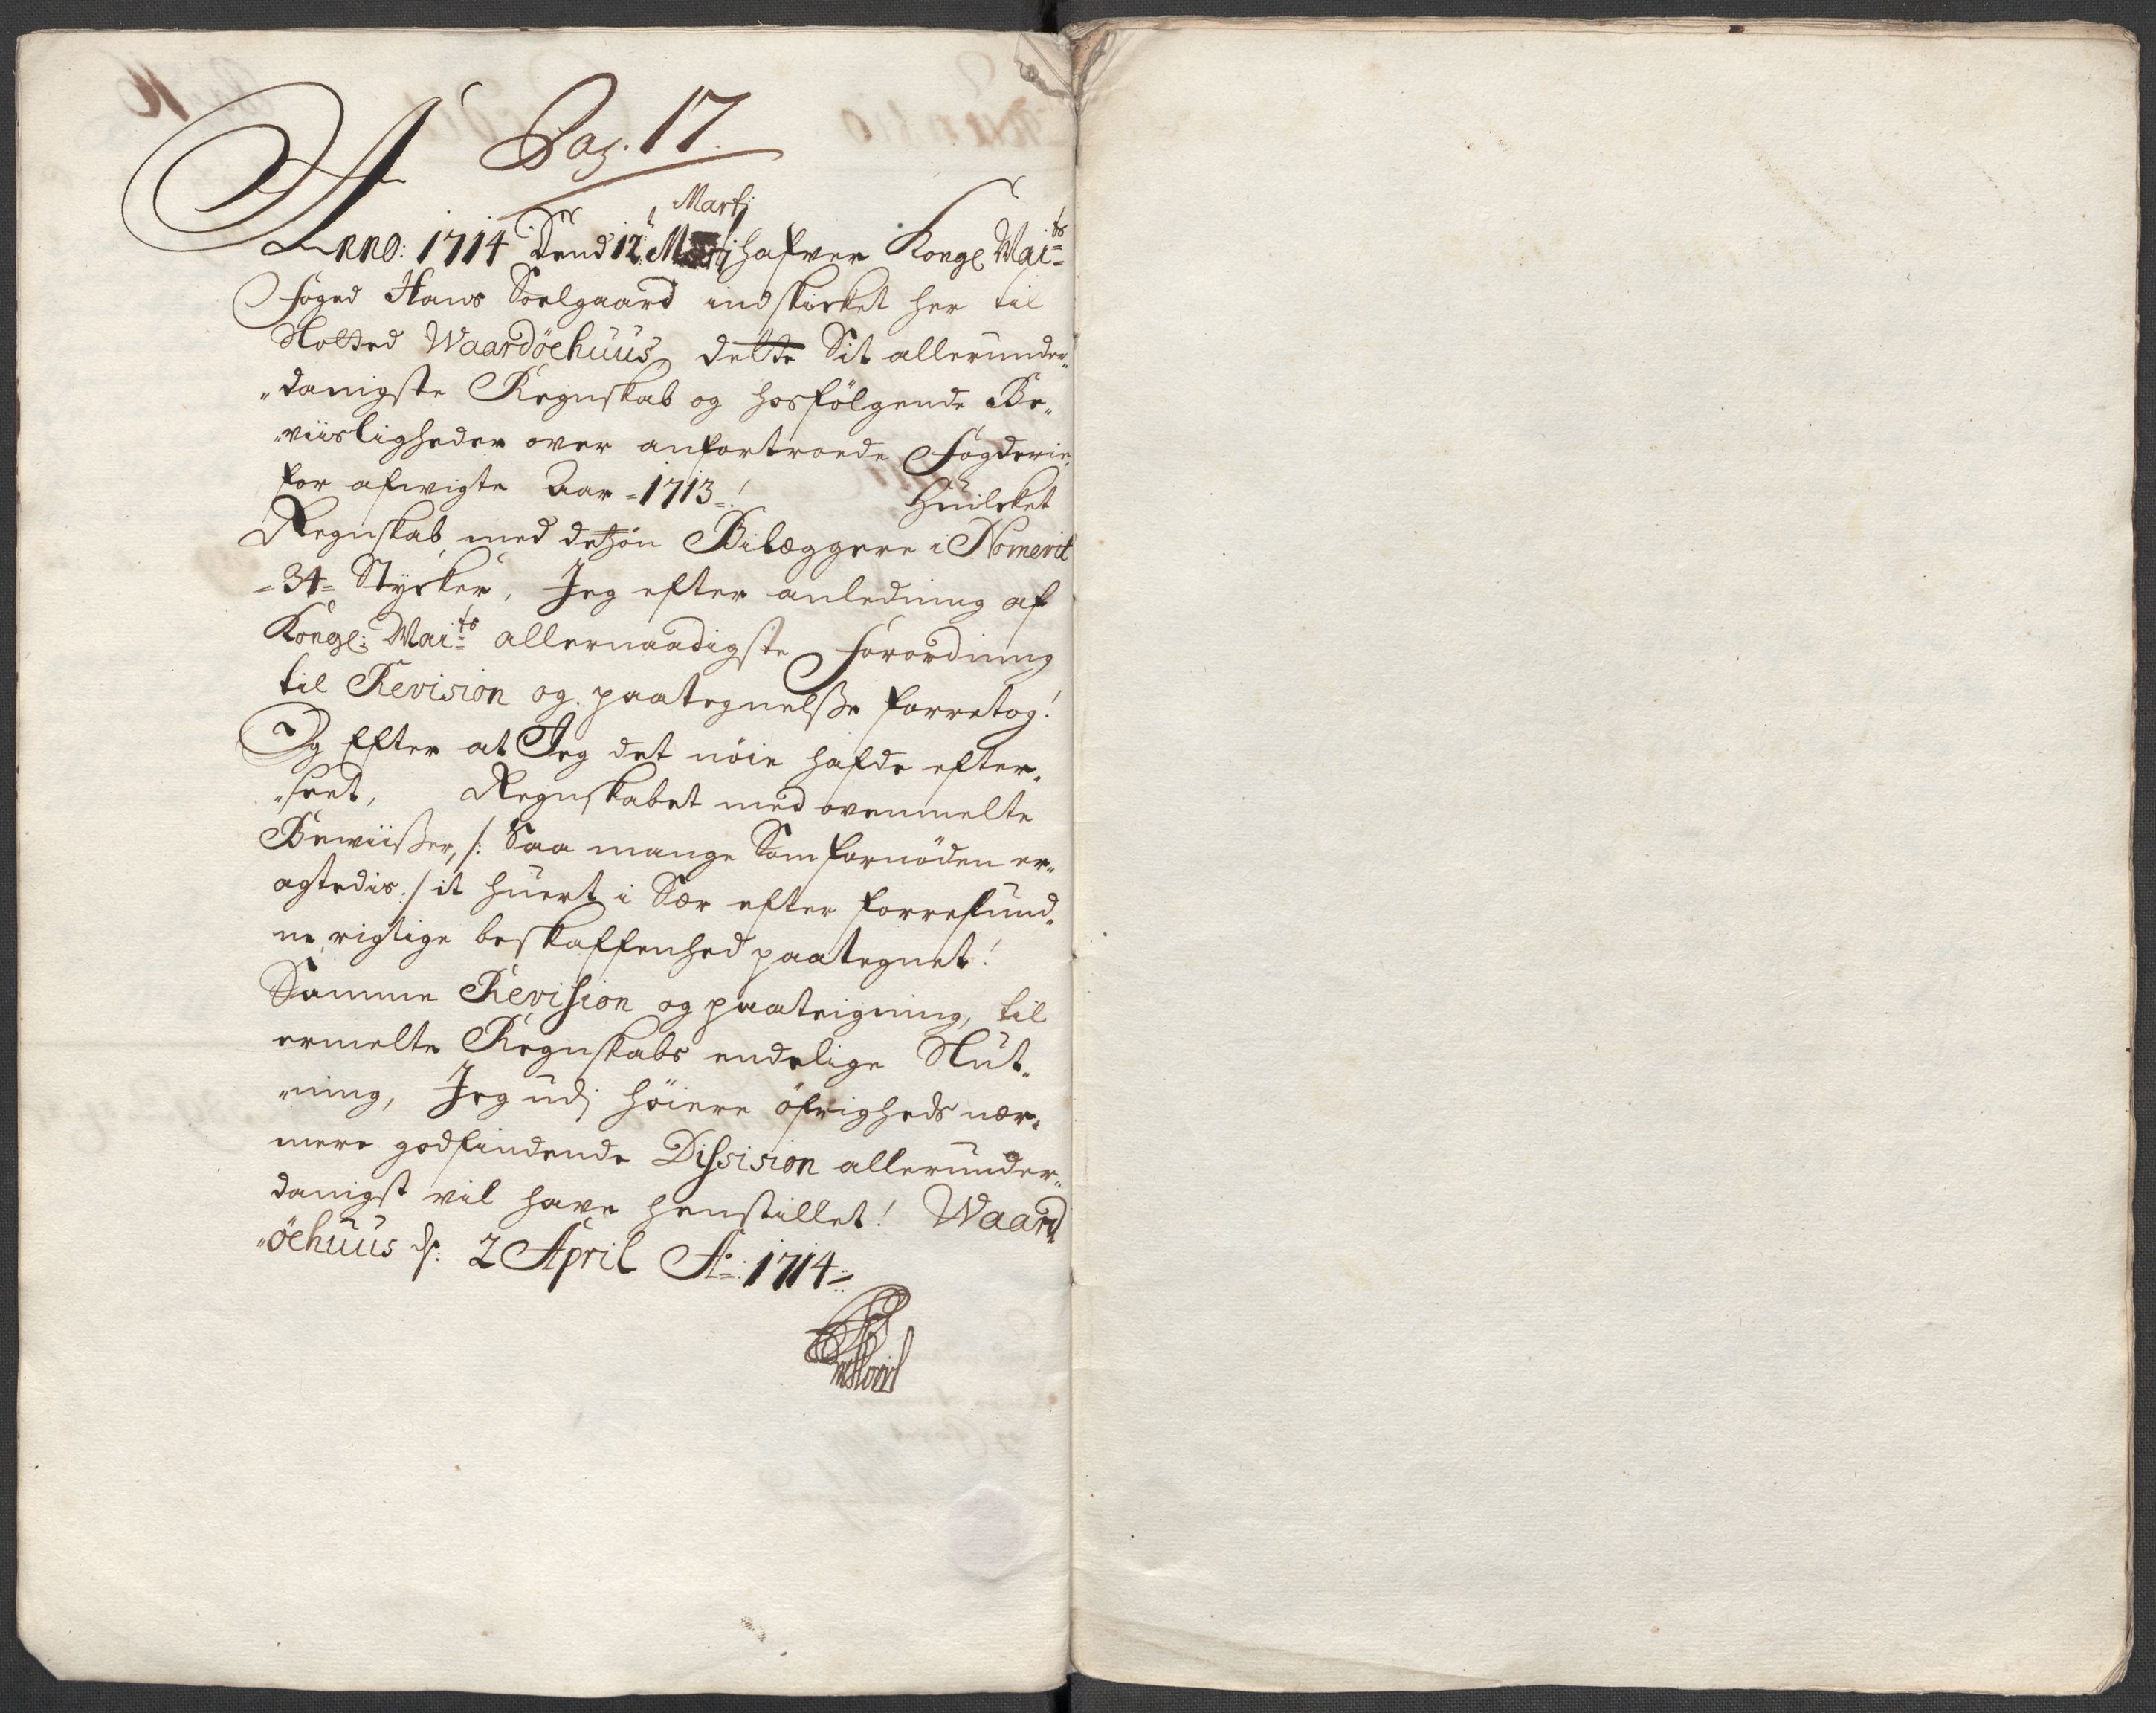 Pag. 17.
Martj
Anno: 1714 Dend 12 Martj hafver Kongl Mai:ts
Foged Hans Soelgaard indskicket her til
Slotted Waardöehuus, dette Sit allerunder„
„danigste Regnskab og hosfölgende Be„
„viisligheder over anfortroede Fogderie,
for afvigte Aar =1713=! Huilcket
Regnskab med dehsön Bilæggere i Nomerit
=34= Stycker, Jeg efter anledning af
Kongl: Mai:ts allernaadigste Forordning
til Revision og paategnelsse forretog!
Og Efter at Jeg det nöie hafde efter„
„seet, Regnskabet med ovenmelte
Beviisser, /: Saa mange Som fornöden er„
agtedis :/ it huert i Sær efter forrefund„
ne rigtige beskaffenhed paategnet!
Samme Revision og paateigning, til
ermelte Regnskabs endelige Slut„
„ning, Jeg udj höiere öfrigheds nær„
mere godfindende Dissision allerunder„
danigst vil have henstillet! Waard„
„öehuus d: 2 April Ao: 1714